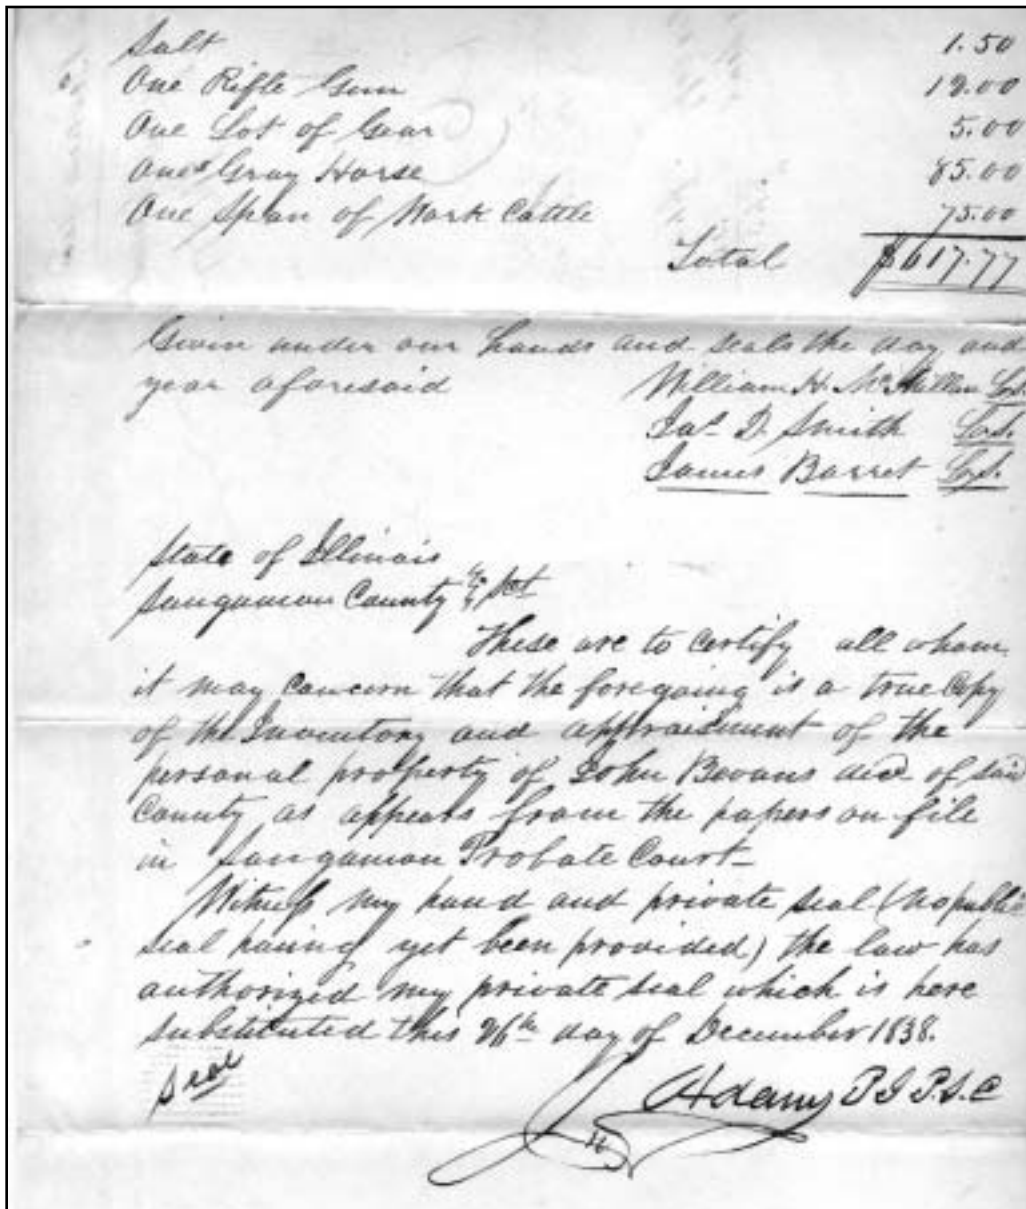 Salt 1.50
One Rifle Gun 12.00
One Lot of Gear 5.00
One Gray Horse 85.00
One Span of Work Cattle 75.00
Total $617.77
Given under our hands and seals the day and
year aforesaid William H. McMillan
Jas D. Smith
James Barret
State of Illinois
Sangamon County Sct
These are to certify all whom
it may concern that the foregoing is a true Copy
of the Inventory and appraisment of the
personal property of John Bevans decd of said
County as appears from the papers on file
in Sangamon Probate Court
Witness my hand and private seal (no public
seal having yet been provided) the law has
authorized my private seal which is here
substituted this 26th day of December 1838.
Seal
J. Adams P J P. S. C